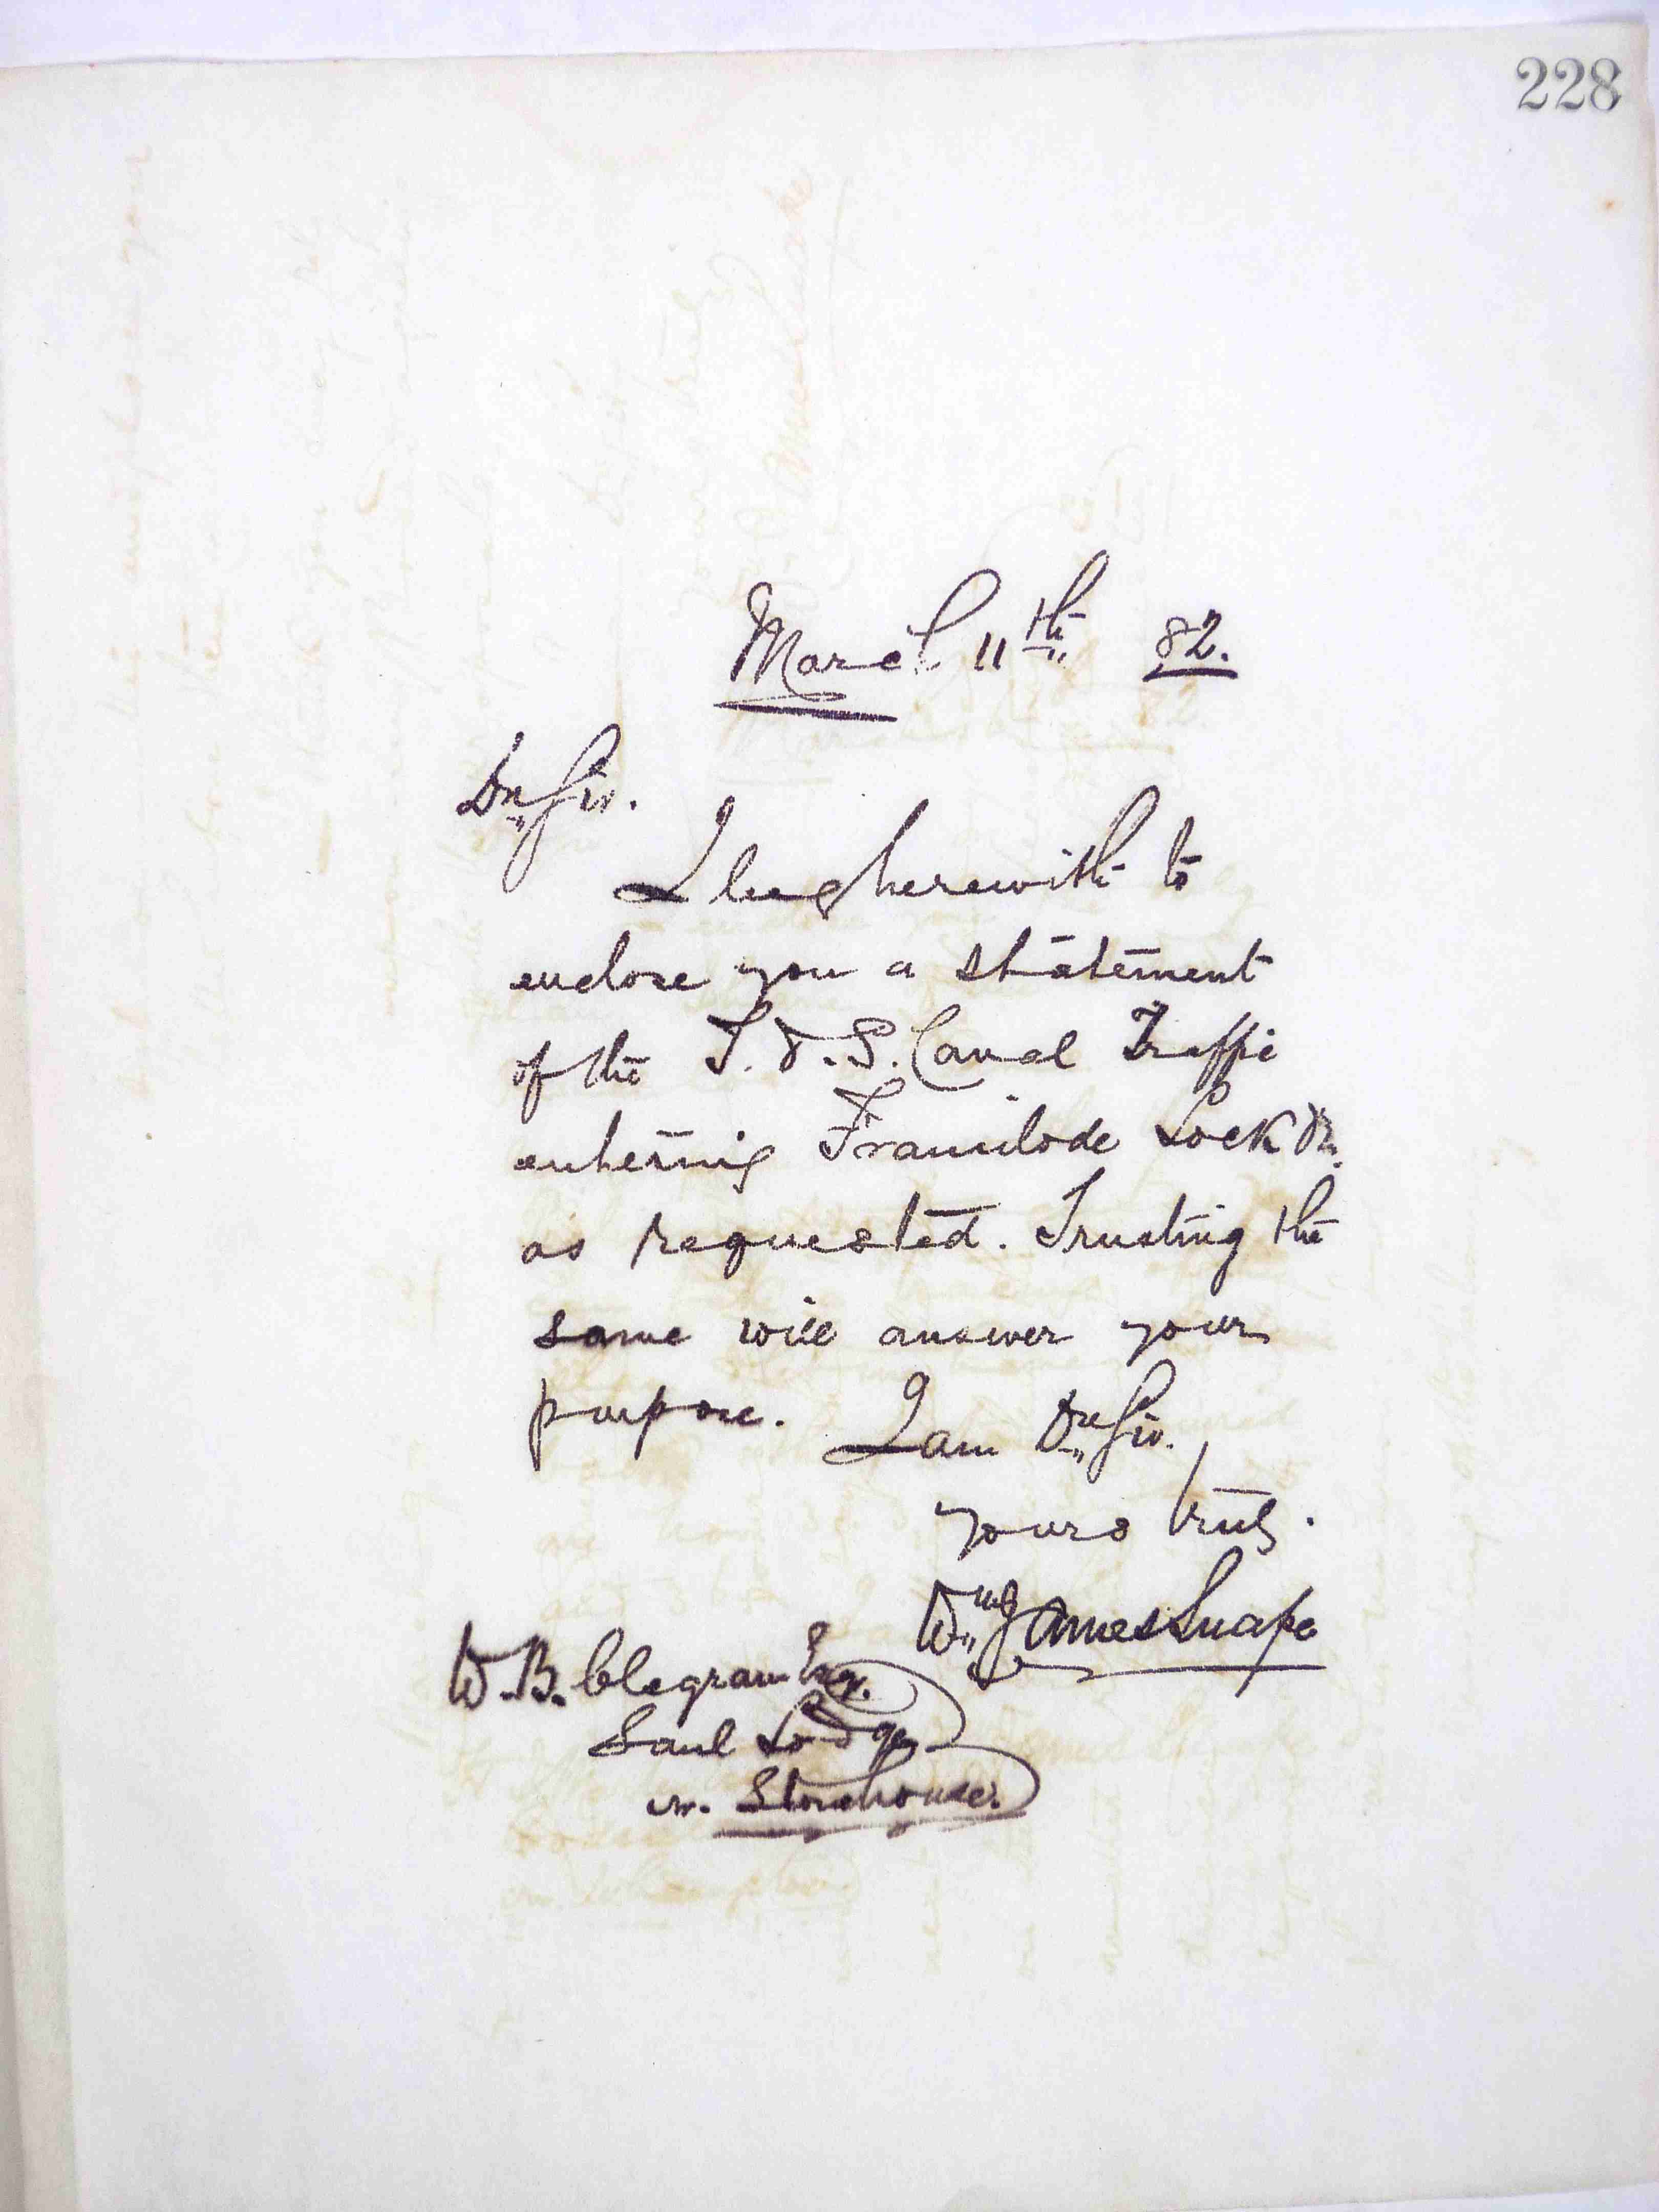 228
March 11th 82.
Dr Sir.
I beg herewith to
enclose you a statement
of the T. & S. Canal Traffic
entering Framilode Lock &c.
as requested. Trusting the
same will answer your
purpose. I am Dr Sir.
yours truly.
Wm James Snape
W. B. Clegram Esq.
Saul Lodge
nr. Stonehouse.